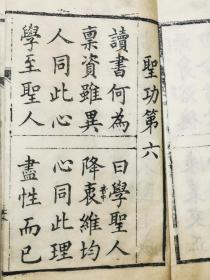 聖功第六
讀書何為 曰學聖人
稟資雖異 降衷維均
人同此心 心同此理
學至聖人 盡性而已